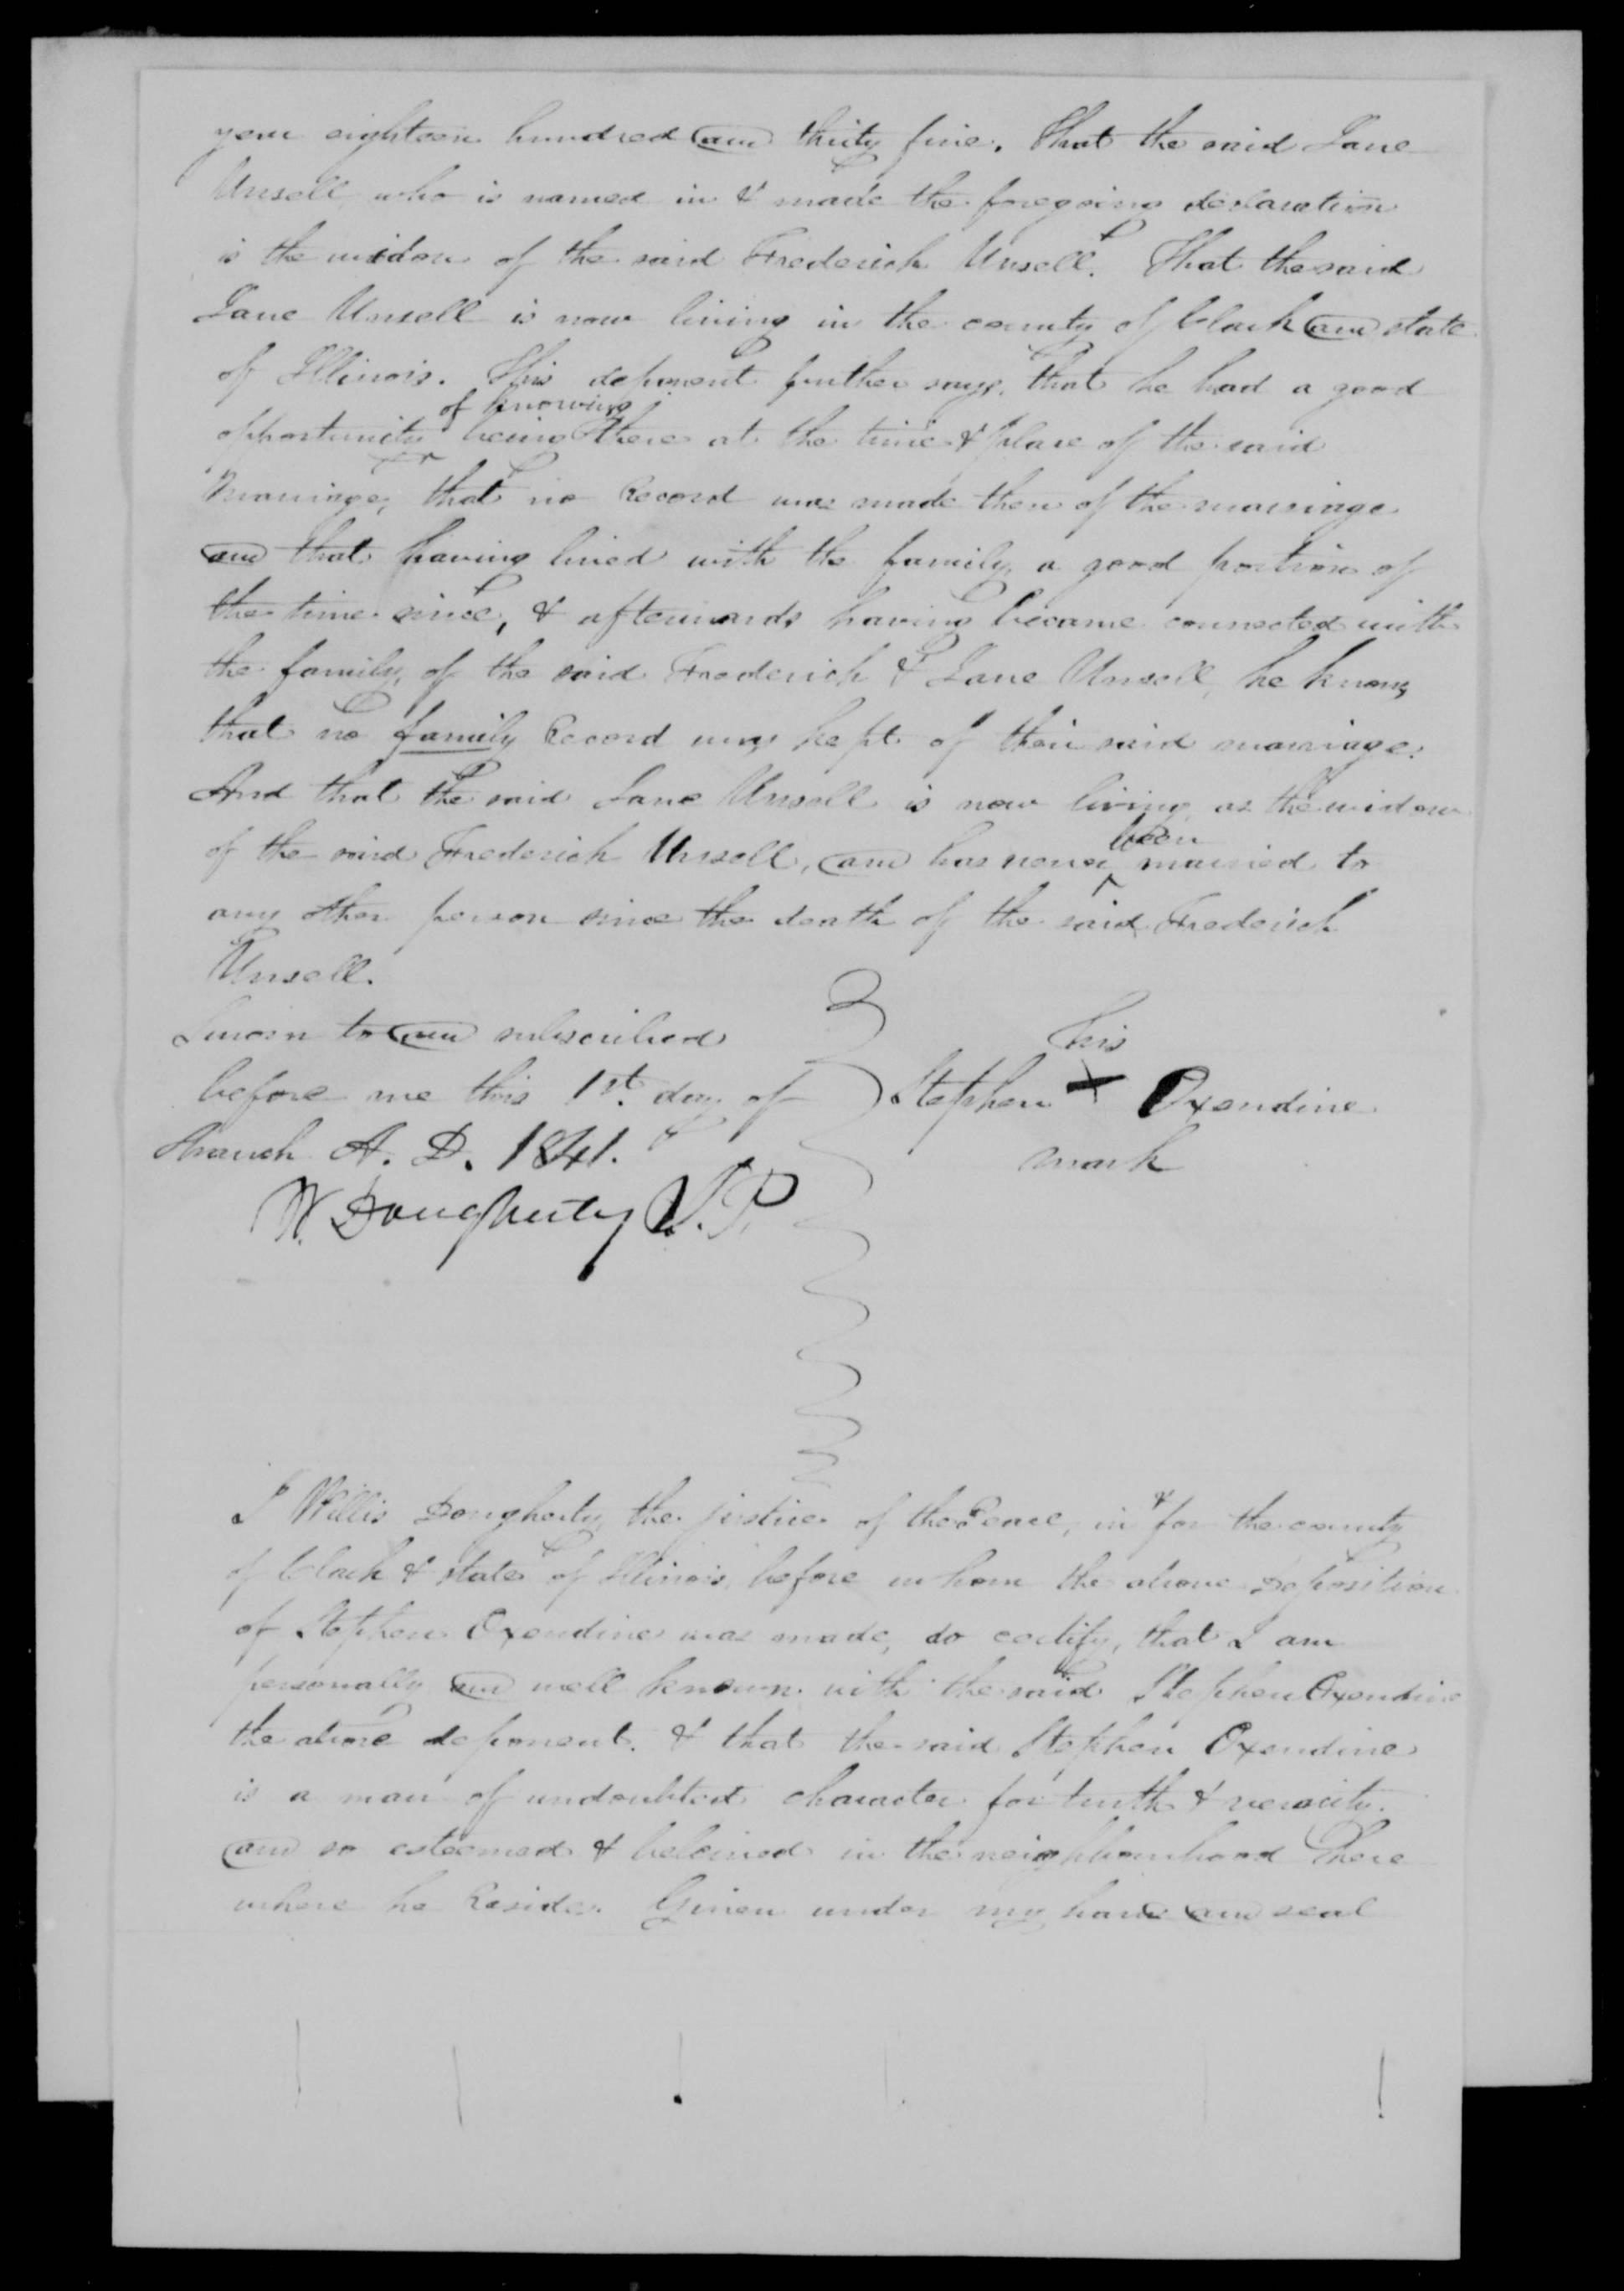 year eighteen hundred and thirty five. That the said Jane
Unsell who is named in & made the foregoing declaration
is the widow of the said Frederick Unsell. That the said
Jane Unsell is now living in the county of Clark and state
of Illinois. This deponent further says, that he had a good
of knowing
opportunity being there at the time & place of the said
marriage, that no Record was made then of the marriage
and that having lived with the family, a good portion of
the time since, & afterwards having became connected with
the family, of the said Frederick & Jane Unsell, he knows
that no family Record was kept of their said marriage.
And that the said Jane Unsell is now living as the widow
of the said Frederick Unsell, and has never been married to
any other person since the death of the said Frederick
Unsell.
Sworn to and subscribed
before me this 1st. day of
March A. D. 1841.
W. Dougherty J.P.
his
Stephen X Oxendine
mark
I Willis Dougherty the justice of the Peace, in & for the county
of Clark & state of Illinois before whom the above Deposition
of Stephen Oxendine was made, do certify, that I am
personally and well known with the said Stephen Oxendine
the above deponent. & that the said Stephen Oxendine
is a man of undoubted character for truth & veracity.
and so esteemed & beleived in the neighbourhood there
where he Resides. Given under my hand and seal